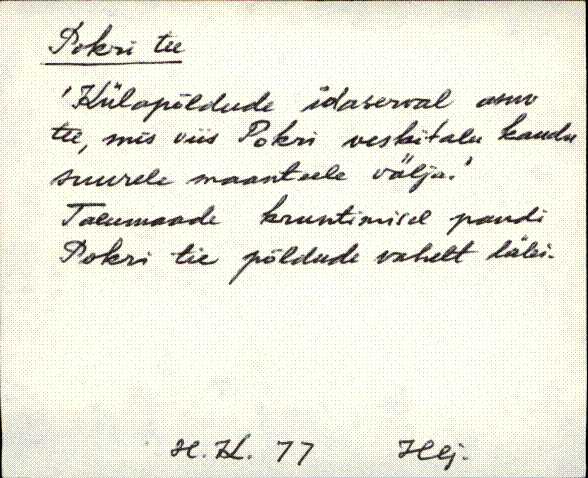 Pokri tee
'Külapõldude idaserval asuv
tee, mis viis Pokri veskitalu kaudu
suurele maanteele välja.'
Talumaade kruntimisel pandi
Pokri tie põldude vahelt läbi.
H. K. 77 Hlj.